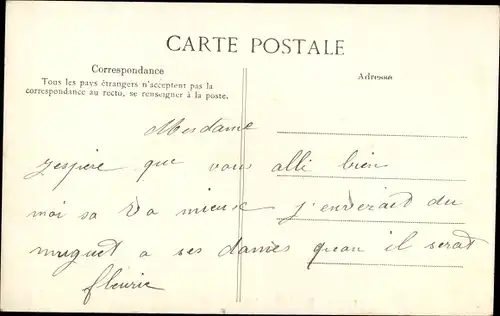 CARTE POSTALE
Correspondance
Tous les pays étrangers n'acceptent pas la
correspondance au recto, se renseigner à la poste.
Adresse
Mesdame
j'espere que vous alli bien
moi sa va mieuse j'enverait du
muguet a ses dames quan il serat
fleurie